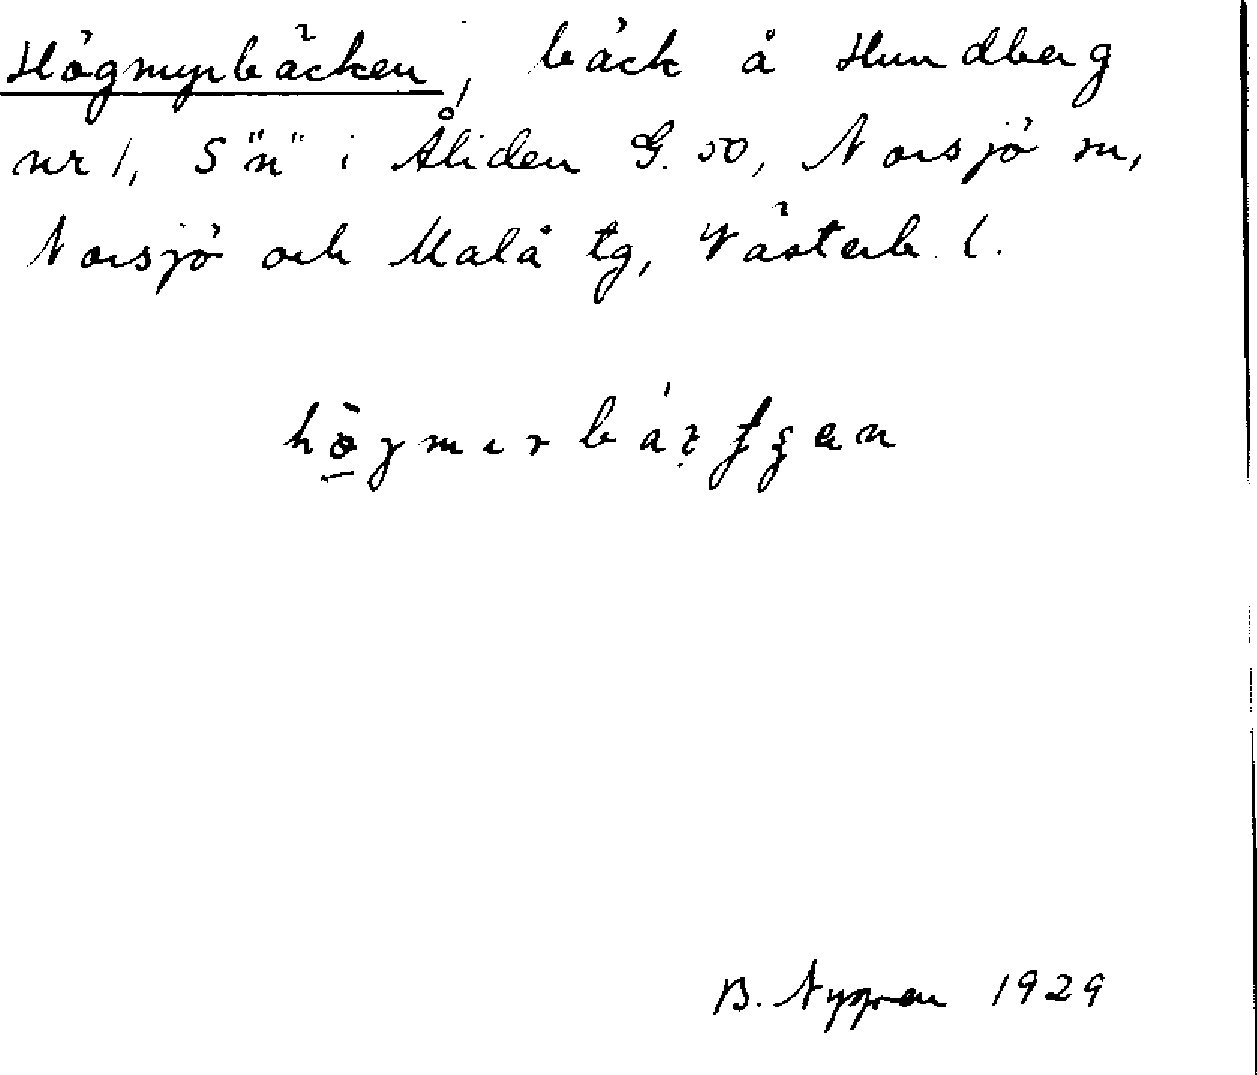 Högmyrbäcken, bäck å Hundberg
nr 1, S "n" i Åliden G. 50, Norsjö sn,
Norsjö och Malå tg, Västerb. l.
B. Nygren 1929